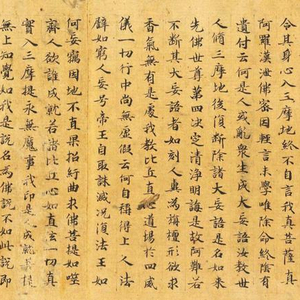 令其身心入三摩地終不自言我真菩薩真
阿羅漢泄佛密因輕言末學唯除命終陰有
遺付云何是人或亂衆生成大妄語汝教世
人脩三摩地後復斷除諸大妄語是名如來
先佛世尊第四決定清淨明誨是故阿難若
不斷其大妄語者如刻人糞為旃檀形欲求
香氣無有是處我教比丘直心道場於四威
儀一切行中尚無虛假云何自稱得上人法
譬如窮人妄号帝王自取誅滅況復法王如
何妄竊因地不真果招紆曲求佛菩提如噬
齊人欲誰成就若諸比丘心如直弦一切真
實入三摩提永無魔事我印是人成就菩薩
無上知覺如我是說名為佛說不如此說即